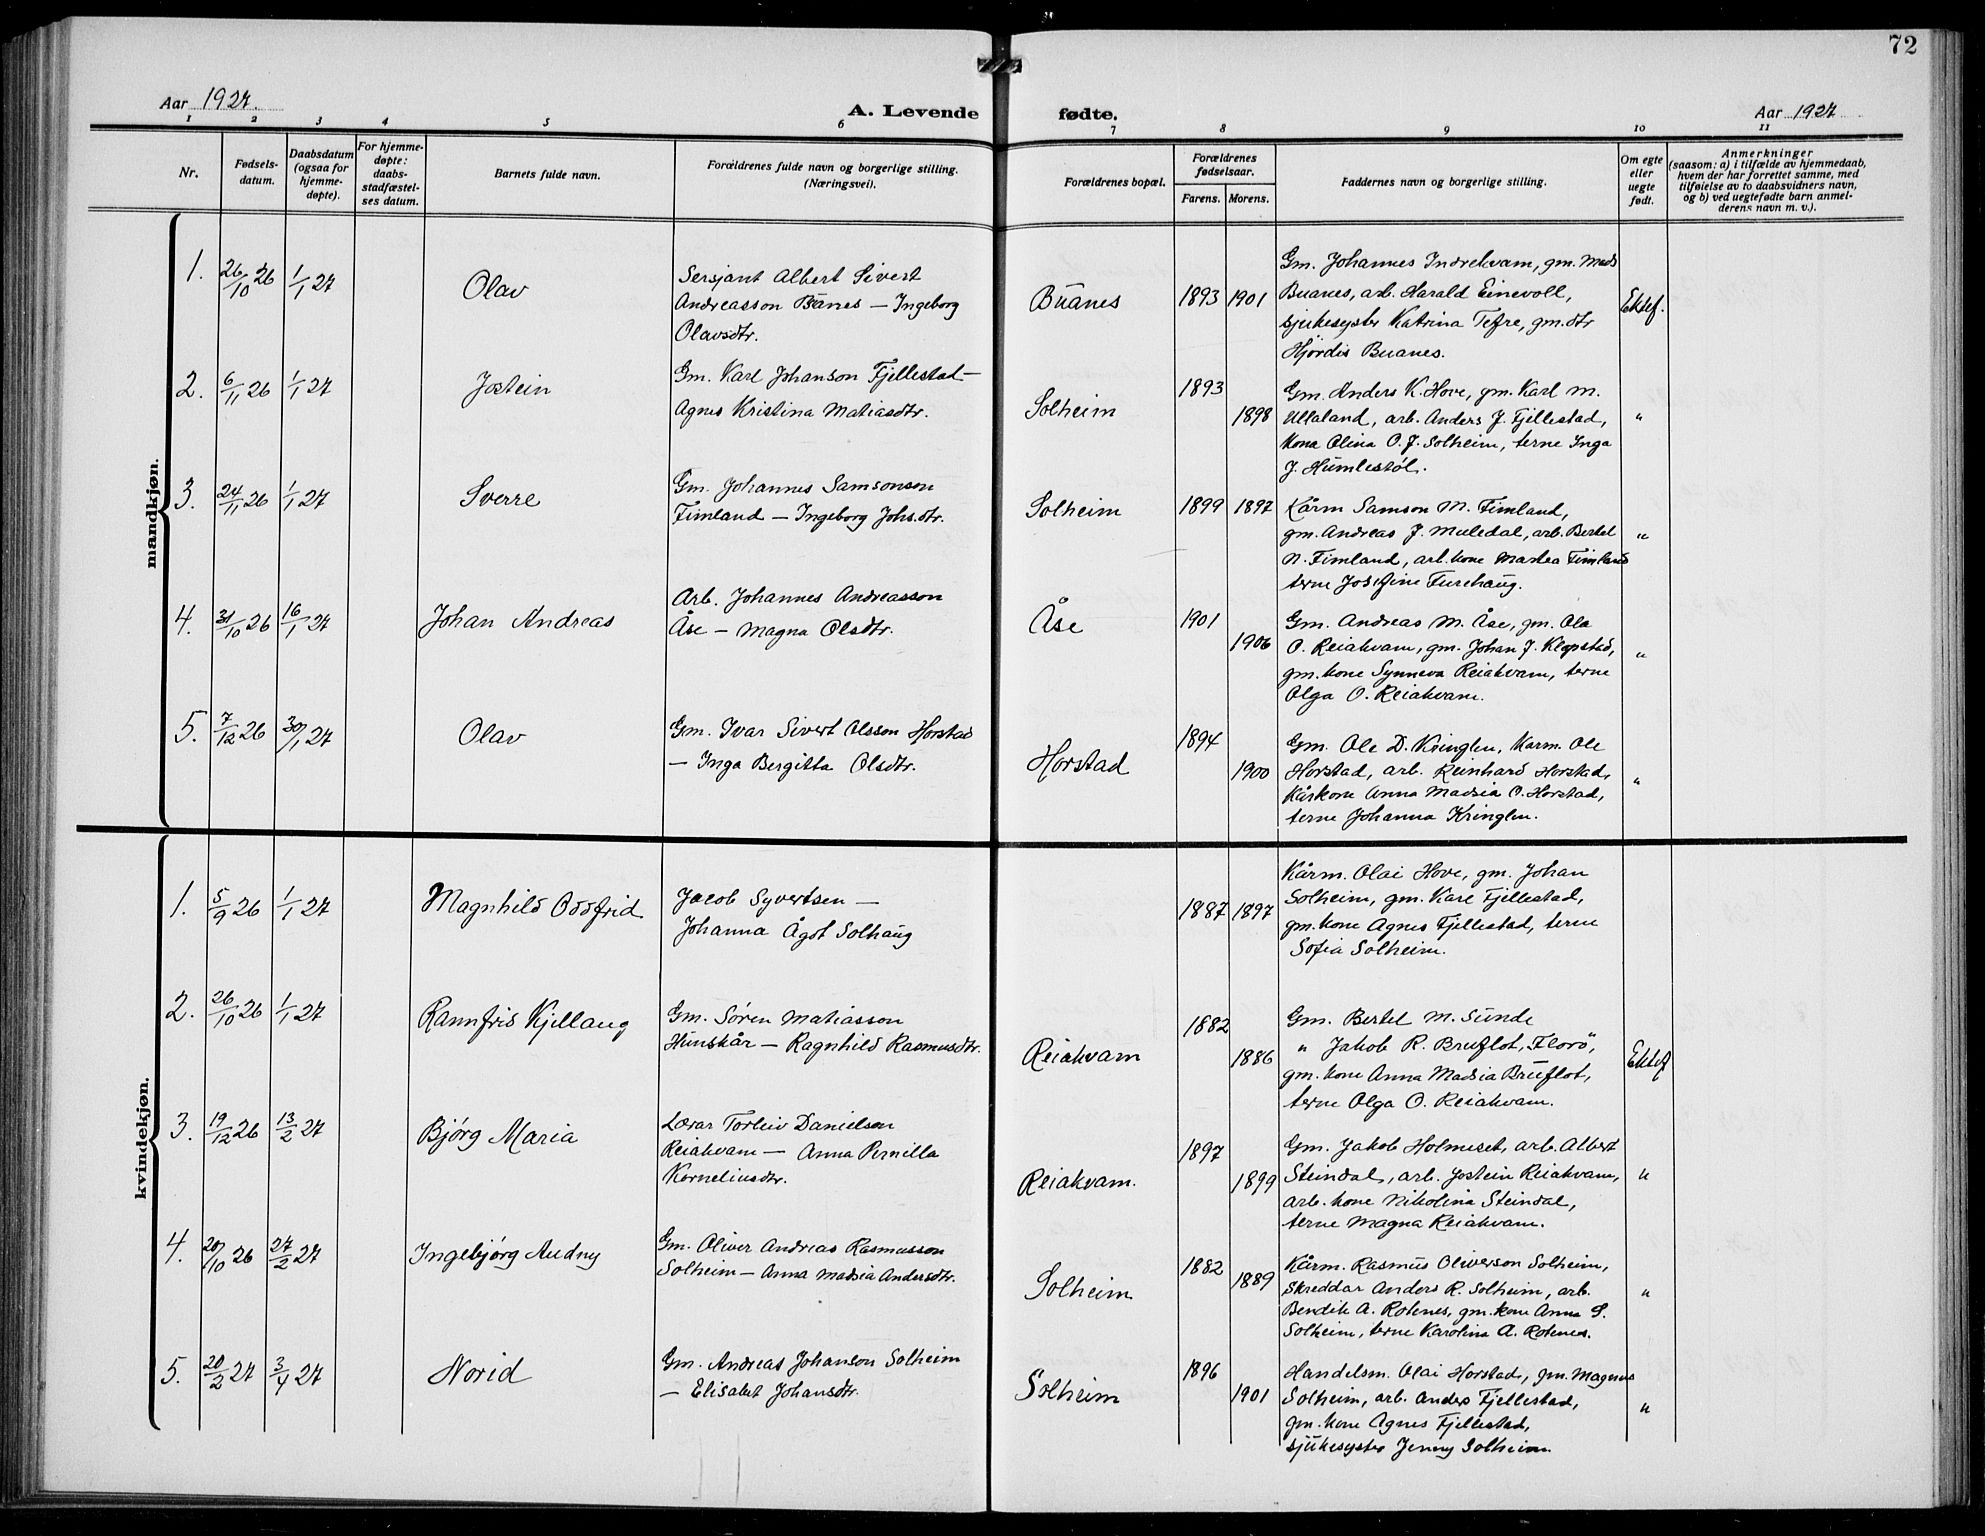 72
Aar 1927. A. Levende fødte. Aar 1927
1 2 3 4 5 6 7 8 9 10 11
Nr.
Fødsels-
datum.
Daabsdatum
(ogsaa for
hjemme-
døpte).
For hjemme-
døpte:
daabs-
stadfæstel-
ses datum.
Barnets fulde navn.
Forældrenes fulde navn og borgerlige stilling.
(Næringsvei).
Forældrenes bopæl.
Forældrenes
fødselsaar.
Farens. Morens.
Faddernes navn og borgerlige stilling.
Om egte
eller
uegte
født.
Anmerkninger
(saasom: a) i tilfælde av hjemmedaab,
hvem der har forrettet samme, med
tilføielse av to daabsvidners navn,
og b) ved uegtefødte barn anmel-
derens navn m. v.).
mandkjøn.
1. 26/10 26 1/1 27 Olav
Sersjant Albert Sivert
Andreasson Buanes — Ingeborg
Olavsdtr.
Buanes 1893 1901
Gm. Johannes Indrekvam, gm. Mads
Buanes, arb. Harald Einevoll,
sjukesyster Katrina Tefre, gm.dtr
Hjördis Buanes.
Ektef.
2. 6/11 26 1/1 27 Jostein
Gm. Karl Johanson Fjellestad —
Agnes Kristina Matiasdtr.
Solheim 1893 1898
Gm. Anders K. Hove, gm. Karl M.
Ullaland, arb. Anders J. Fjellestad,
kona Olina O. J. Solheim, terne Inga
J. Humlestöl.
"
3. 24/11 26 1/1 27 Sverre
Gm. Johannes Samsonson
Fimland — Ingeborg Johs.dtr.
Solheim 1899 1897
Kårm Samson M. Fimland,
gm. Andreas J. Muledal, arb. Bertel
N. Fimland, arb. kone Martea Fimland
terne Josefine Furehaug.
"
4. 31/10 26 16/1 27 Johan Andreas
Arb. Johannes Andreasson
Åse — Magna Olsdtr.
Åse 1901 1906
Gm. Andreas M. Åse, gm. Ola
O. Reiakvam, gm. Johan J. Klopstad,
gm. kone Synneva Reiakvam, terne
Olga O. Reiakvam.
"
5. 7/12 26 30/1 27 Olav
Gm. Ivar Sivert Olsson Horstad
— Inga Bergitta Olsdtr.
Horstad 1894 1900
Gm. Ole D. Kringlen, Karm. Ole
Horstad, arb. Reinhard Horstad,
Kårkone Anna Madsia O. Horstad,
terne Johanna Kringlen.
"
kvindekjøn.
1. 5/9 26 1/1 27 Magnhild Oddfrid
Jacob Syvertsen —
Johanna Ågot Solhaug
1887 1897
Kårm. Olai Hove, gm. Johan
Solheim, gm. Karl Fjellestad,
gm. kone Agnes Fjellestad, terne
Sofia Solheim.
2. 26/10 26 1/1 27 Rannfrid Kjellaug
Gm. Sören Matiasson
Hunskår — Ragnhild Rasmusdtr.
Reiakvam 1882 1886
Gm. Bertel M. Sunde
" Jakob R. Bruflot, Florö,
gm. kone Anna Madsia Bruflot,
terne Olga O. Reiakvam.
Ektef
3. 19/12 26 13/2 27 Bjørg Maria
Lærar Torleiv Danielson
Reiakvam — Anna Pernilla
Korneliusdtr.
Reiakvam. 1897 1899
Gm. Jakob Holmeset, arb. Albert
Steindal, arb. Jostein Reiakvam,
arb. kone Nikolina Steindal,
terne Magna Reiakvam.
"
4. 20/10 26 27/2 27 Ingebjørg Audny
Gm. Oliver Andreas Rasmusson
Solheim — Anna Madsia Andersdtr.
Solheim 1882 1889
Kårm. Rasmus Oliverson Solheim,
Skreddar Anders R. Solheim, arb.
Bendik A. Rotenes, gm. kone Anna S.
Solheim, terne Karolina A. Rotenes.
"
5. 20/2 27 3/4 27 Norid
Gm. Andreas Johanson Solheim
— Elisabet Johansdtr.
Solheim 1896 1901
Handelsm. Olai Horstad, gm. Magnus
Solheim, arb. Anders Fjellestad,
gm. kone Agnes Fjellestad,
sjukesyster Jenny Solheim.
"